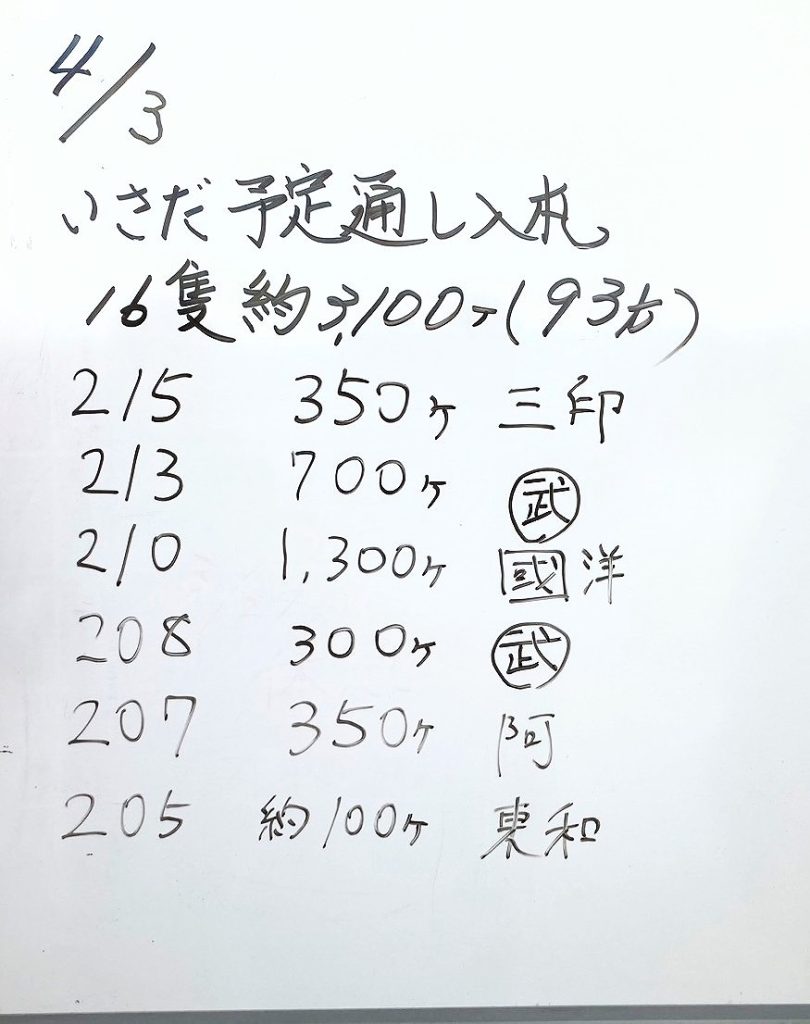 4/3
いさだ予定通し入札
16隻約3,100ヶ(93t)
215 350ヶ 三印
213 700ヶ ㊥武
210 1,300ヶ 國洋
208 300ヶ 武
207 350ヶ 阿
205 約100ヶ 東和